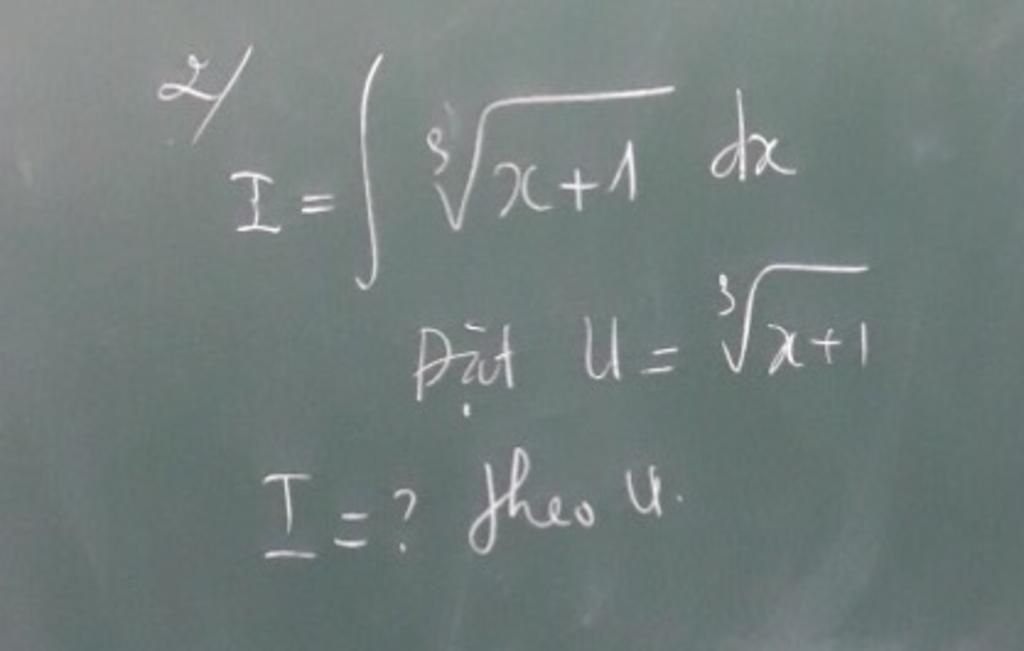 2/
I = ∫ ∛(x+1) dx
Đặt U = ∛(x+1)
I = ? theo u.